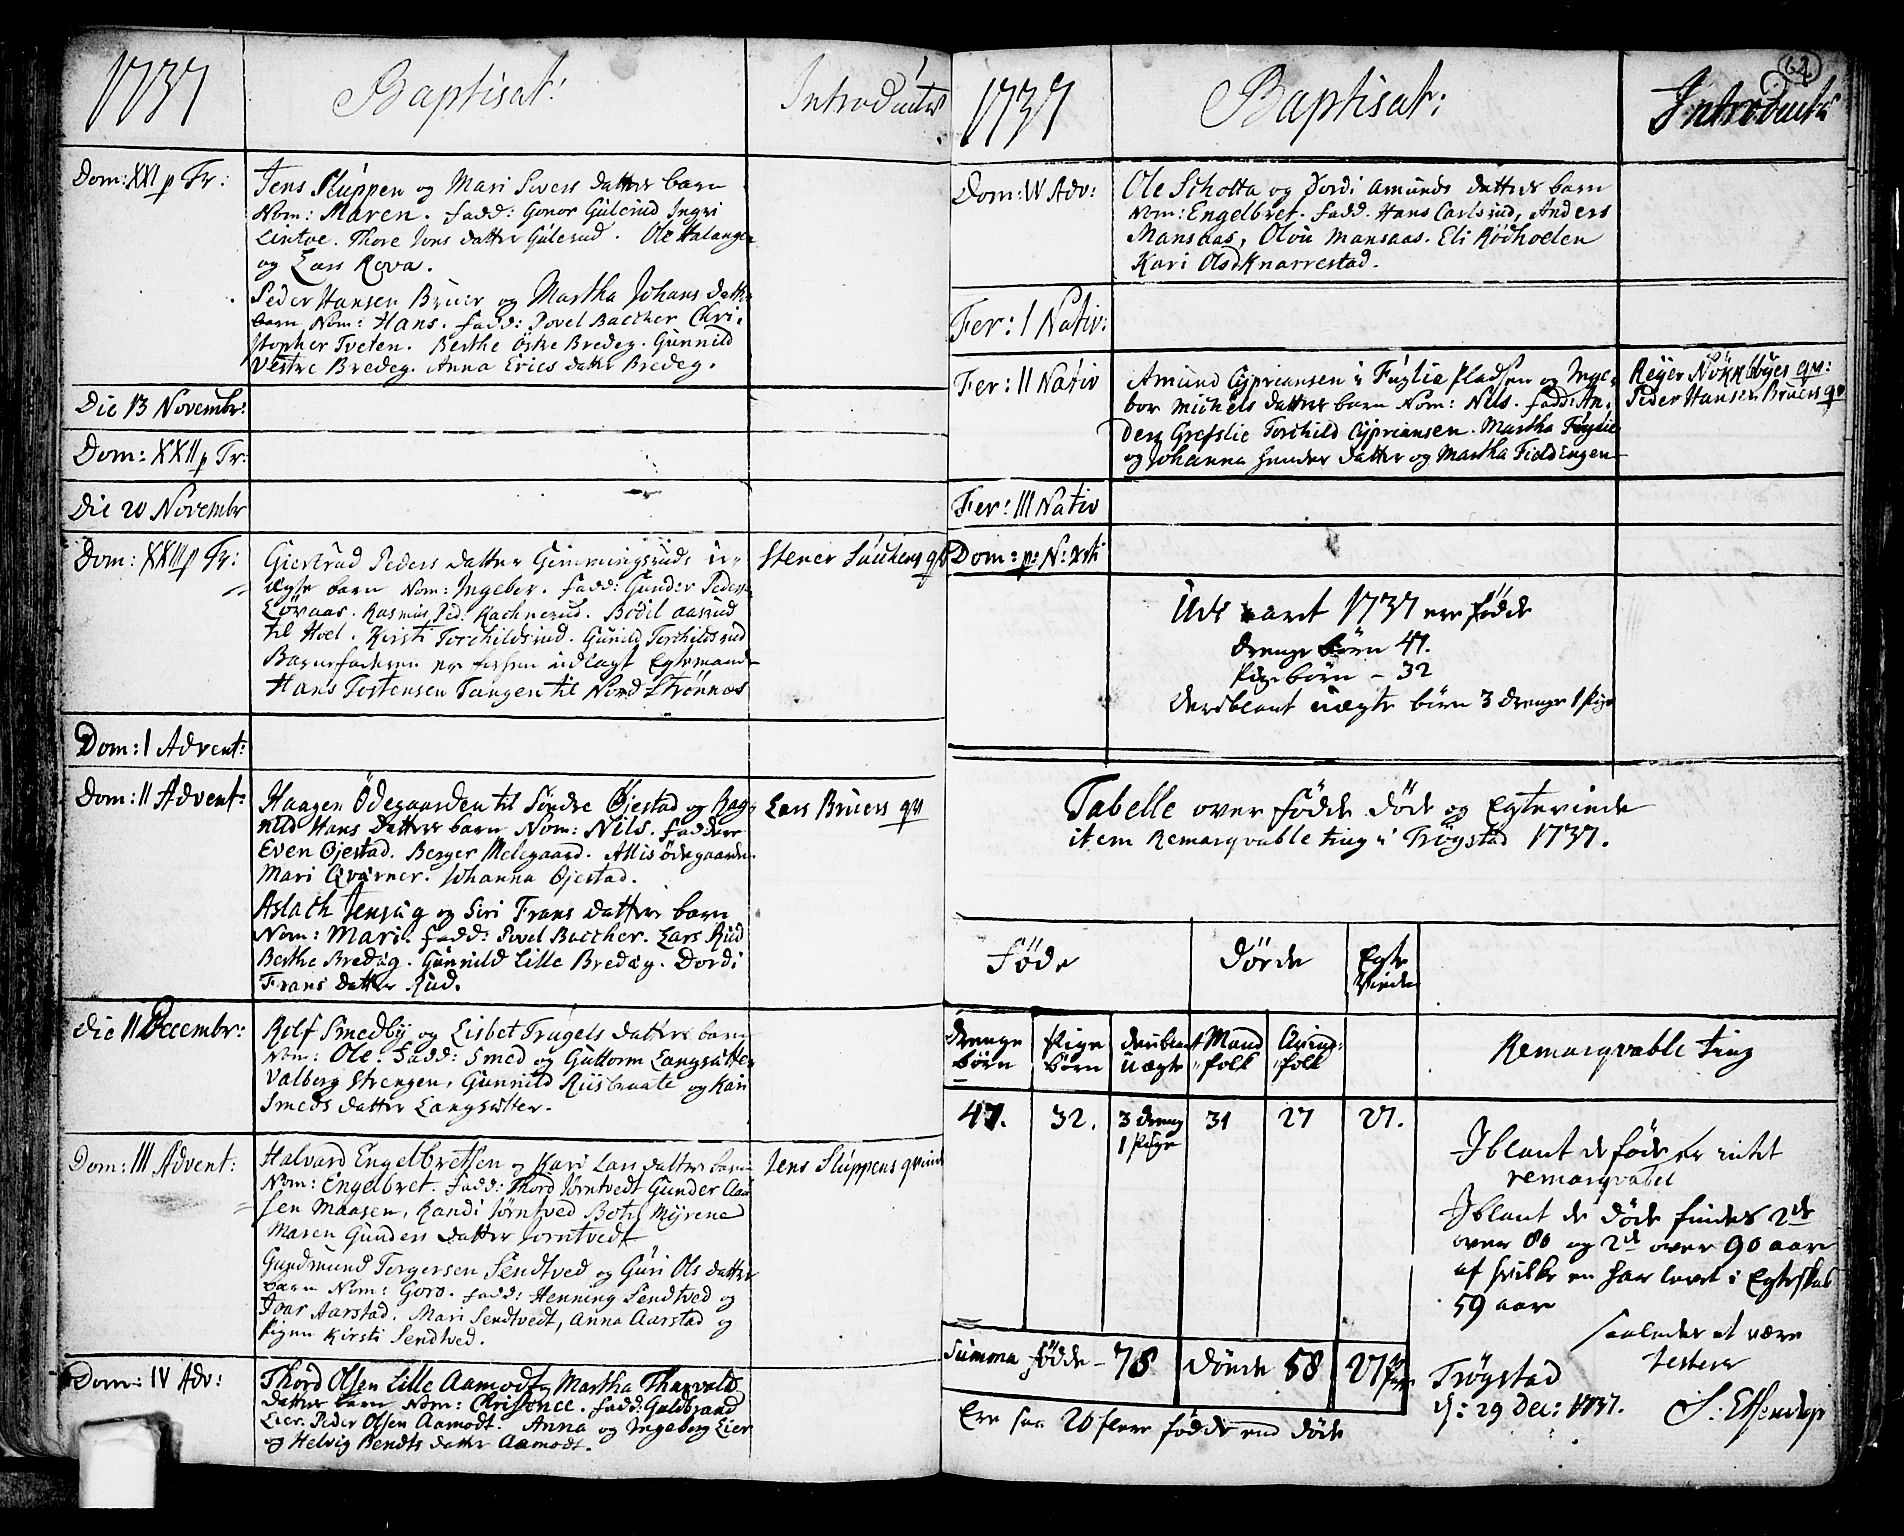 1737 Baptisat: Introductus
Dom: XXI p Tr:
Jens Sluppen og Mari Sivers datters barn
Nom: Maren. Fadd: Gonor Gulerud Ingri
Lintoe. Thore Jons datter Gulerud. Ole Halangen
og Lars Rova.
Peder Hansen Bruer og Martha Johans datters
barn Nom: Hans. Fadd: Povel Baccher Chri-
stopher Tveten. Berthe Østre Bredeg. Gunnild
Vestre Bredeg. Anna Erics datter Bredeg.
Die 13 Novembr:
Dom: XXII p Tr:
Die 20 Novembr
Dom: XXIII p Tr:
Giertrud Peders datter Gimmingsruds u-
ægte barn Nom: Ingeber. Fadd: Gunder Peders
Løvaas. Rasmus Ped. Kachnerud. Bodil Aasrud
til Hoel. Kirsti Torchildsrud. Gunild Torchildsrud
Barnefaderen er udlagt Egtemand
Hans Tostensen Tangen til Nord Strønnes
Stener Suckens qv
Dom: I Advent:
Dom: II Advent:
Haagen Ödegaarden til Söndre Øjestad og Rag-
nild Hans datters barn Nom: Nils. Faddere
Even Øjestad. Berger Melegaard. Allis ödegaarden
Mari Qvärner. Johanna Øjestad.
Lars Bruers qv
Aslach Jensug og Siri Frans datters barn
Nom: Mari. Fadd: Povel Baccher. Lars Rud
Berthe Bredug. Gunnild Lille Bredug. Dordi
Frans datter Rud.
Die 11 Decembr:
Rolf Smedby og Lisbet Trugels datters barn
Nom: Ole. Fadd: Smed og Guttorm Langsætter
Valborg Strengen, Gunnild Riisbraate og Kari
Smeds datter Langsætter.
Dom: III Advent:
Halvard Engelbretsen og Kari Lars datters barn
Nom: Engelbret. Fadd: Thord Jørntvedt Gunder Aas
sen Maasen, Randi Jørntved Botel Myrene
Maren Gunders datter Jorntvedt
Jens Sluppens qvinde
Gundmund Torgersen Sendtved og Guri Ols datters
barn Nom: Goro. Fadd: Henning Sendtved og
Joar Aarstad. Mari Sendtvedt, Anna Aarstad og
pigen Kirsti Sendtved.
Dom: IV Adv:
Thord Olsen Lille Aamodt og Martha Tharvald
datters barn Nom: Christence. Fadd: Guldbrand
Lier. Peder Olsen Aamodt. Anna og Ingeborg Lier
og Helvig Bendts datter Aamodt.
62
1737 Baptisat: Introduct:
Dom: IV Adv:
Ole Scholta og Dordi Amunds datters barn
Nom: Engelbret. Fadd. Hans Carlsrud, Anders
Mansaas, Olou Mansaas. Eli Rødhoelen
Kari Olsd Knarrestad.
Fer: I Nativ:
Fer: II Nativ
Amund Cyprians­en i Fuglie Pladsen og Inge-
bor Michels datters barn Nom: Nils. Fadd: An-
ders Grefslie Torchild Cypriansen. Martha Fuglie
og Johanna Gunders datter og Martha Fieldengen
Reyer Nökkebyes qv:
Peder Hansen Bruers qv
Fer: III Nativ
Dom: p: N: Xsti
Udi aaret 1737 ere fødde
drenge börn 47.
Pige börn – 32
deriblant uægte börn 3 drenge 1 pige
Tabelle over fødde døde og Egteviede
item Remarqvable ting i Trøgstad 1737.
Føde Dørde Egte Viede
drenge börn
Pige börn
deriblant uægte
Mand folk
Qvind: folk
Remarqvable ting
47. 32. 3 dreng 1 Pige 31 27 27.
Iblant de føde er intet
remarqvabel
Iblant de døde findes 2de
over 80 og 2de over 90 aar
af hvilke en har levet i Egteskab
59 aar
Summa fødde – 78 dörde 58 27 par
Ere saa 20 flere fødde end døde
saaledes at være
testerer
Trøgstad
d: 29 Dec: 1737.